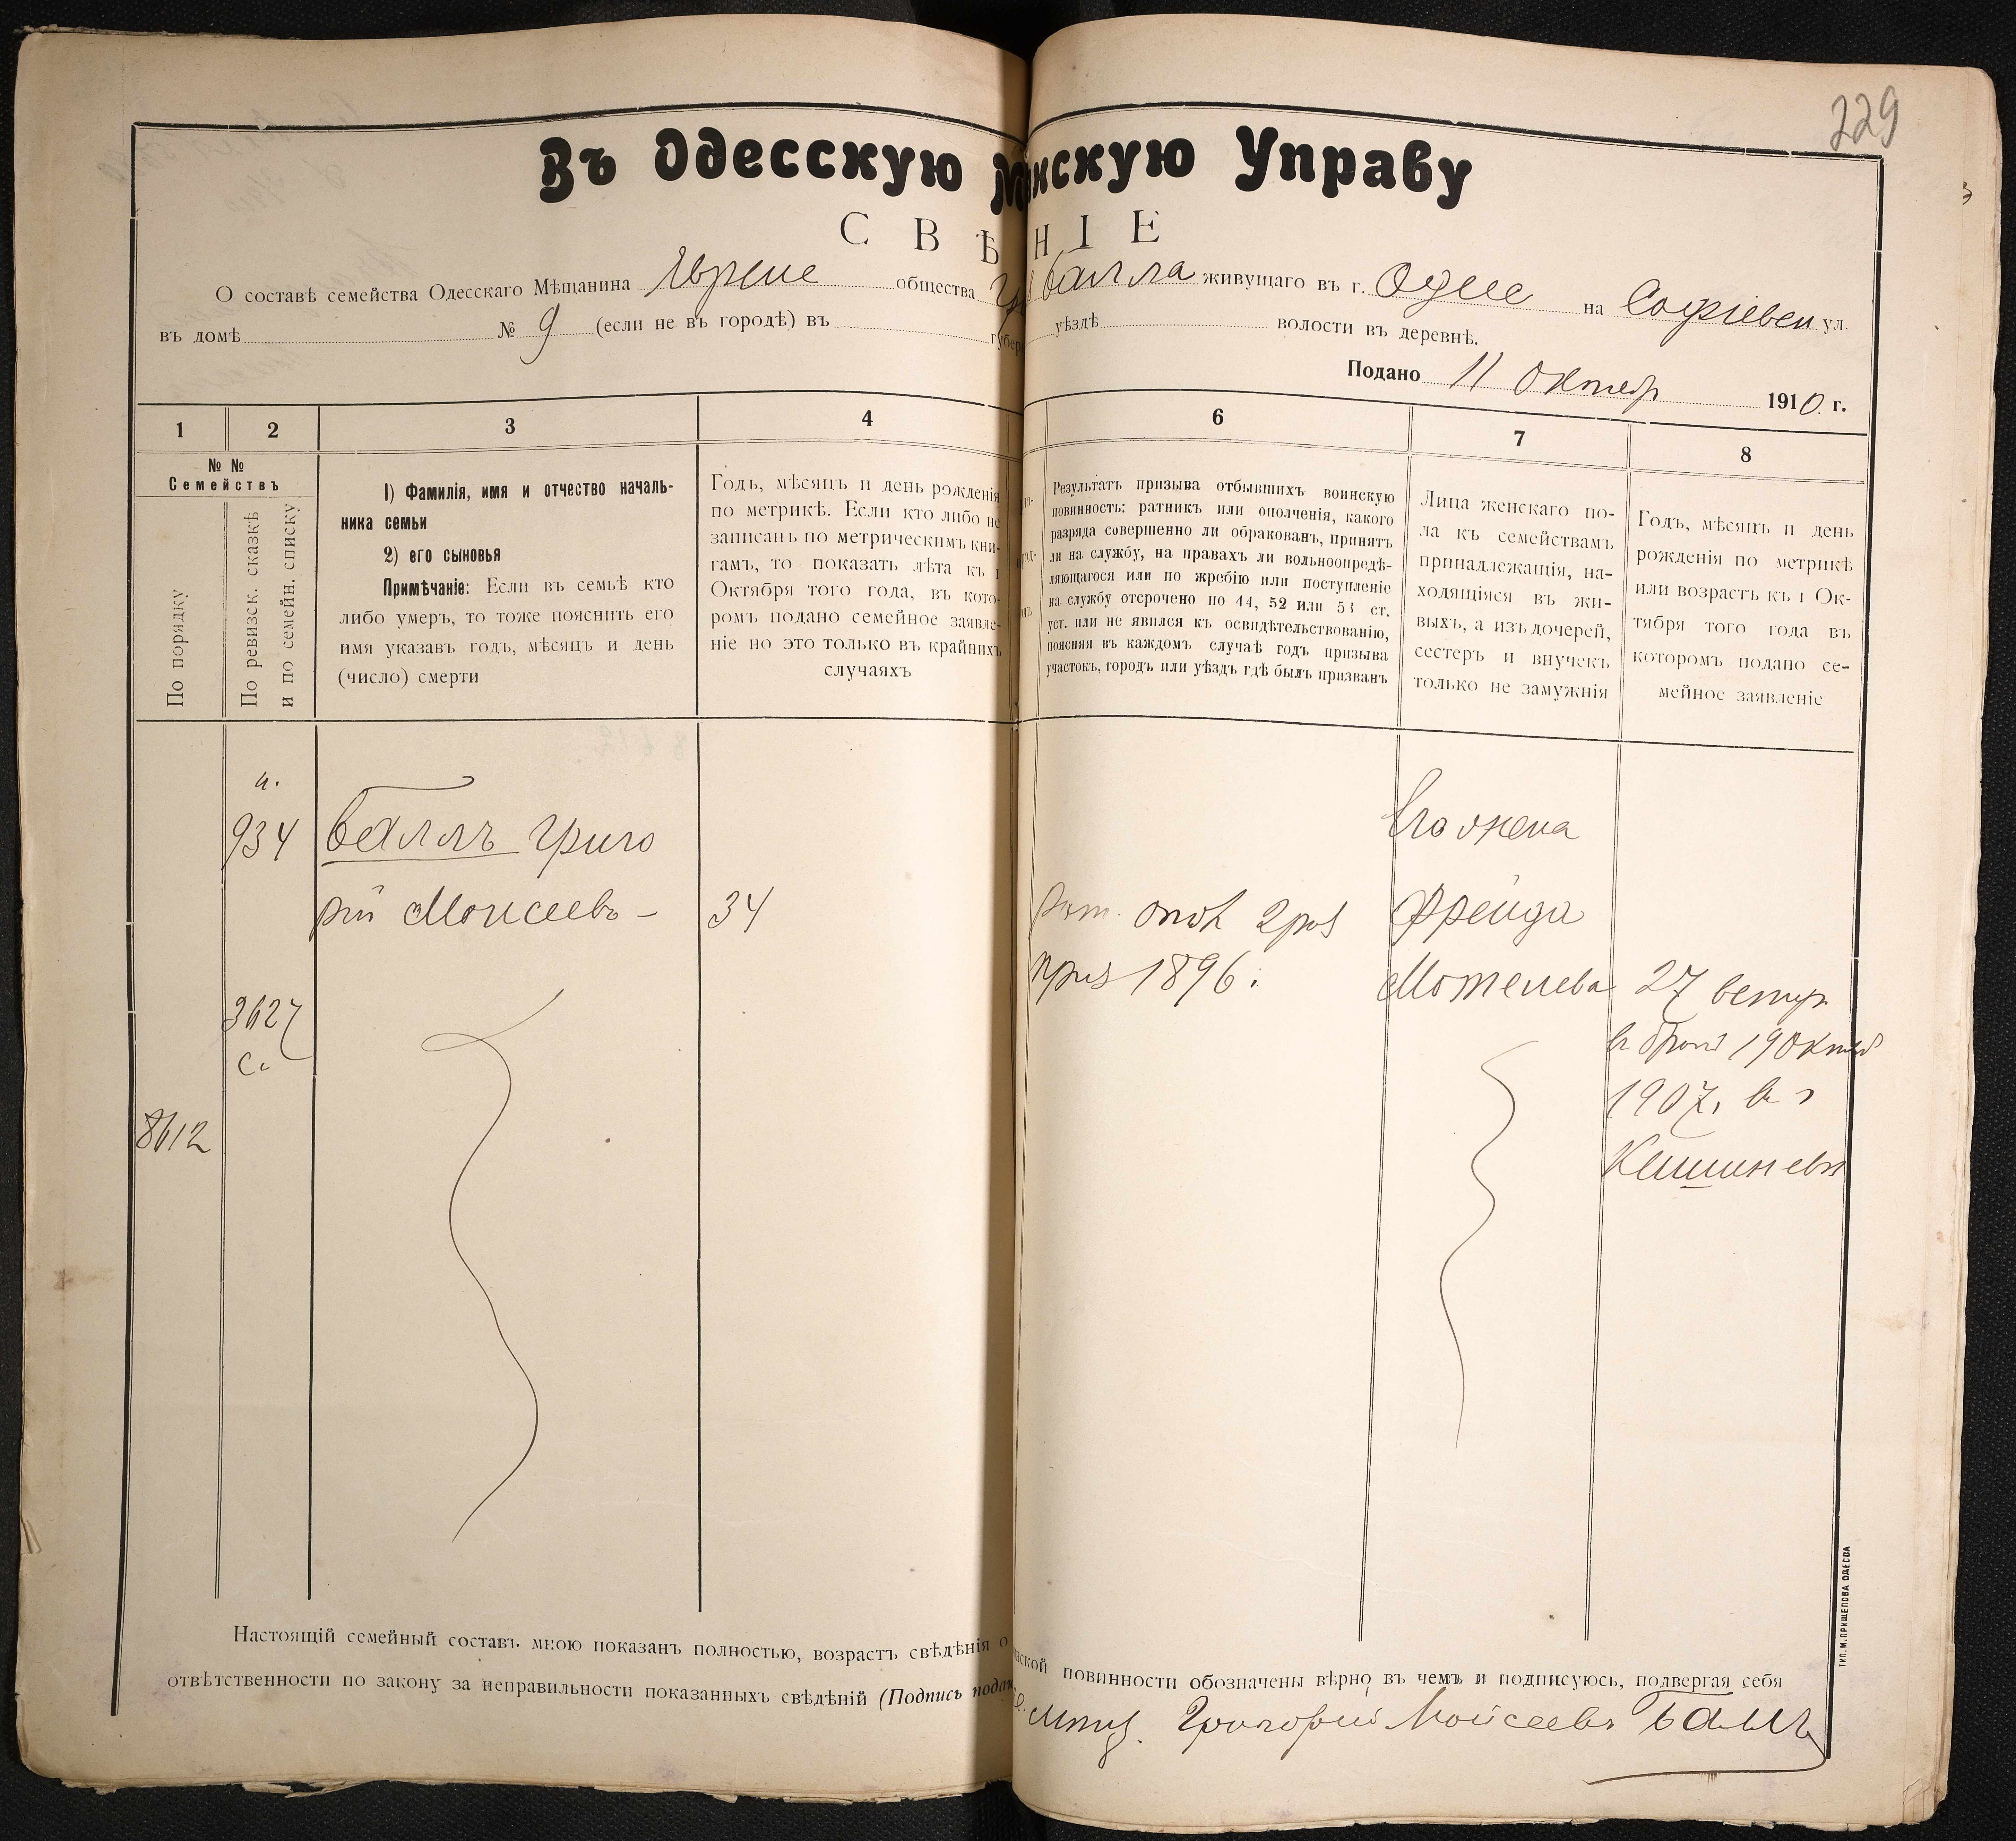 229
Въ Одесскую М нскую Управу
СВѢ НІЕ
О составѣ семейства Одесскаго Мѣщанина общества Балла живущаго въ г. Одессе на Софіевск ул.
въ домѣ № 9 (если не въ городѣ) въ губер уѣздѣ волости въ деревнѣ.
Подано 11 Октяб 1910 г.
1 2 3 4 6 7 8
№ №
Семействъ
По порядку
По ревизск. сказкѣ
и по семейн. списку
1) Фамилія, имя и отчество началь-
ника семьи
2) его сыновья
Примѣчаніе: Если въ семьѣ кто
либо умеръ, то тоже пояснить его
имя указавъ годъ, мѣсяцъ и день
(число) смерти
Годъ, мѣсяцъ и день рожденія
по метрикѣ. Если кто либо не
записанъ по метрическимъ кни-
гамъ, то показать лѣта къ 1
Октября того года, въ кото-
ромъ подано семейное заявле-
ніе но это только въ крайнихъ
случаяхъ
Результатъ призыва отбывшихъ воинскую
повинность: ратникъ или ополченія, какого
разряда совершенно ли обракованъ, принятъ
ли на службу, на правахъ ли вольноопредѣ-
ляющагося или по жребію или поступленіе
на службу отсрочено по 44, 52 или 53 ст.
уст. или не явился къ освидѣтельствованію,
поясняя въ каждомъ случаѣ годъ призыва
участокъ, городъ или уѣздъ гдѣ былъ призванъ
Лица женскаго по-
ла къ семействамъ
принадлежащія, на-
ходящіяся въ жи-
выхъ, а изъ дочерей,
сестеръ и внучекъ
только не замужнія
Годъ, мѣсяцъ и день
рожденія по метрикѣ
или возрастъ къ 1 Ок-
тября того года въ
которомъ подано се-
мейное заявленіе
934 Баллъ Григо
рій Моисеевъ - 34
рат. опол 2 раз
приз 1896 г
3627
с.
8612
Его жена
Фрейда
Мотелева 27 вступ
въ бракъ 19 Октяб
1907 г. в г
Кишиневѣ
Настоящій семейный составъ мною показанъ полностью, возрастъ свѣдѣнія о нской повинности обозначены вѣрно въ чемъ и подписуюсь, подвергая себя
отвѣтственности по закону за неправильности показанныхъ свѣдѣній (Подпись подав
Григорий Мойсеевъ Баллъ
ТИП. М. ПРИЩЕПОВА ОДЕССА